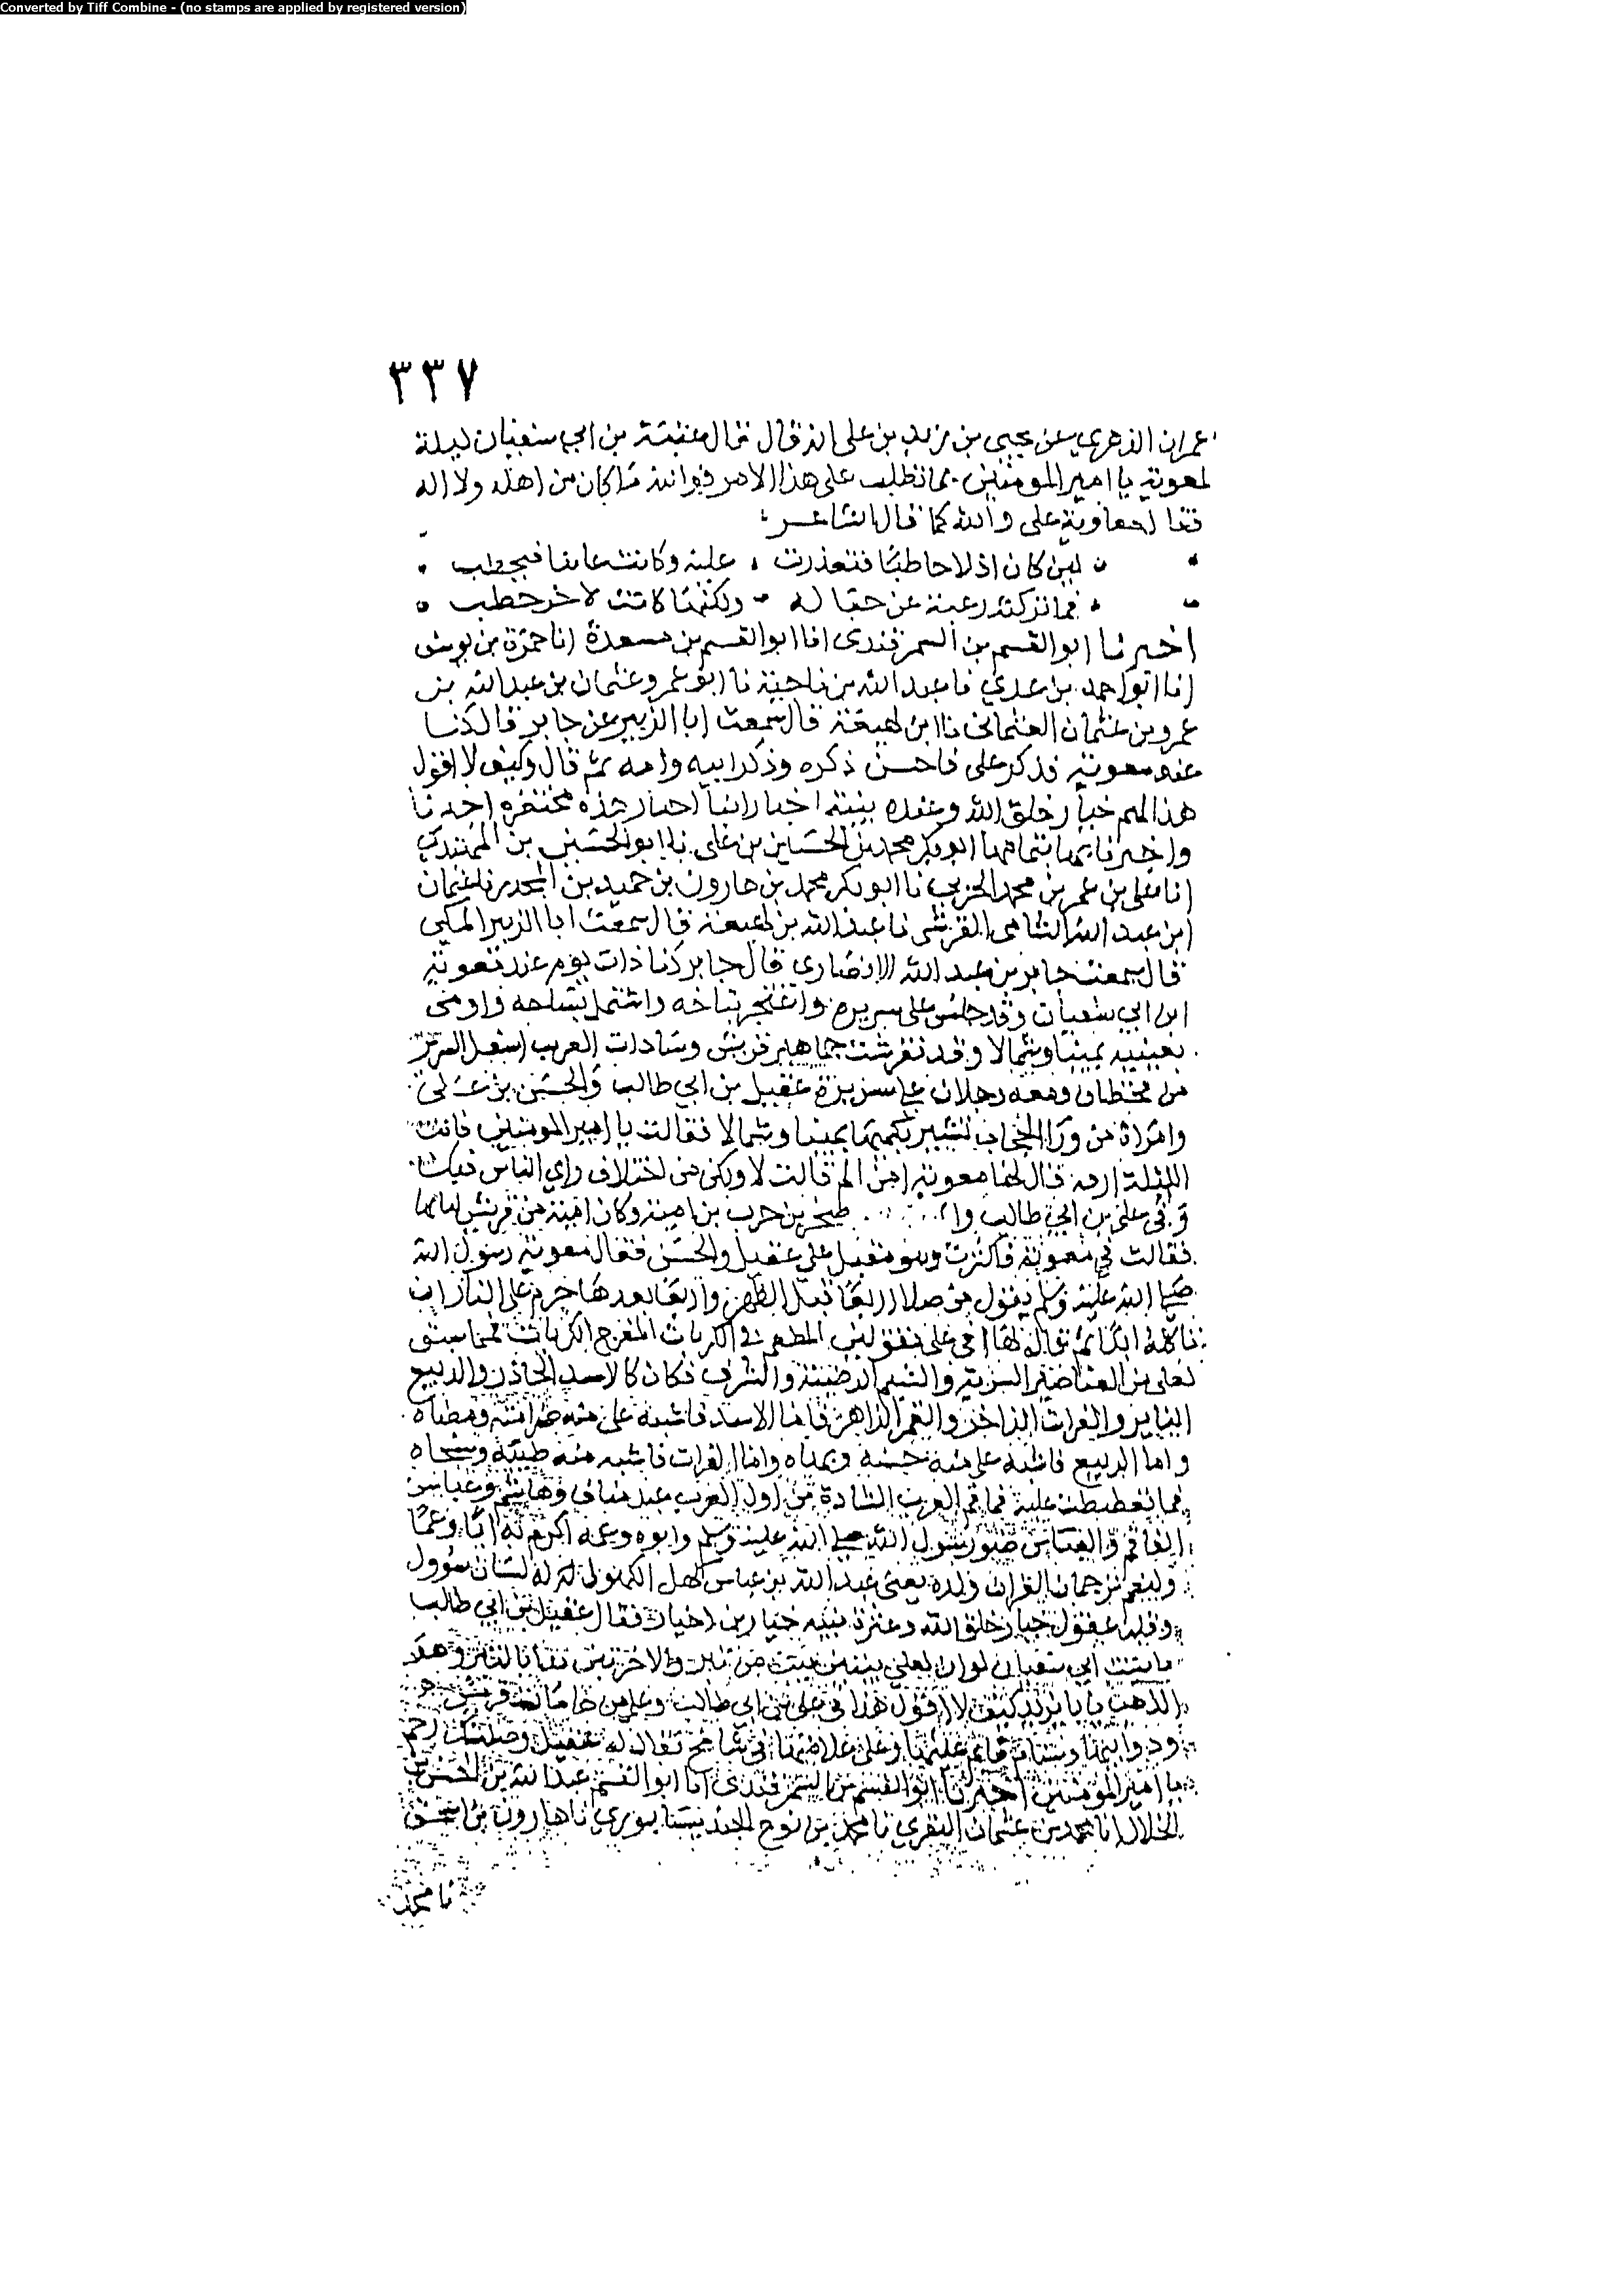 Converted by Tiff Combine - (no stamps are applied by registered version)
٣٣٧
عمران الزهري عن يحيى بن زيد بن علي انه قال قال عتبة بن ابي سفيان ليلة
لمعوية يا امير المومنين بما تطلب على هذا الامر فوالله ما كان من اهله ولا اله
فقال معاوية على والله كما قال الشاعر
لين كان اذ لا حاطبا فتعذرت عليه وكانت فيحطب
فما تركته رغبة عن حباله ولكنها كانت لاخر خطب
اخبرنا ابو القسم بن السمرقندي انا ابو القسم بن مسعدة انا حمزة بن يوسف
انا ابو احمد بن عدي نا عبد الله بن ناجية نا ابو عمرو عثمان بن عبد الله بن
عمرو بن عثمان العثماني نا ابن لهيعة قال سمعت ابا الزبير عن جابر قال كنا
عند معوية فذكر علي فاحسن ذكره وذكر ابيه وامه ثم قال وكيف لا اقول
هذا لهم خيار خلق الله وعنده بنيه اخيار ابنا اخيار هذه مختصرة
واخبرنا بها بتمامها ابو بكر محمد بن الحسين بن علي نا ابو الحسين بن المهتدي
انا علي بن عمر بن محمد الحربي نا ابو بكر محمد بن هارون بن حميد بن المجدر نا عثمان
ابن عبد الله الشامي القرشي نا عبد الله بن لهيعة قال سمعت ابا الزبير المكي
قال سمعت جابر بن عبد الله الانصاري قال جابر كنا ذات يوم عند معوية
ابن ابي سفيان وقد جلس على سريره واعتجر بتاجه واشتمل بساجه واومى
بعينيه يمينا وشمالا وقد تفرشت جماهير قريش وسادات العرب اسفل السرير
من قحطان ومعه رجلان على سريره عقيل بن ابي طالب والحسن بن علي
وامراة من ورا الحجاب تشير بكمها يمينا وشمالا فقالت يا امير المومنين فاتت
الليلة ارقة قال لها معوية امن الم قالت لا ولكن من اختلاف راي الناس فيك
وفي علي بن ابي طالب صخر بن حرب بن امية وكان امية من قريش لبابها
فقالت في معوية فاكثرت وهو مقبل على عقيل والحسن فقال معوية رسول الله
صلى الله عليه وسلم يقول من صلا اربعا قبل الظهر واربعا بعدها حرم على النار ان
تاكله ابدا ثم قال لها افي علي تقولين المطعم في الكربات المفرج الكربات مع ما سبق
لعلي من العناصر السرية والشيم الرضية والشرف فكان كالاسد الحاذر والربيع
الناير والفرات الزاخر والقمر الزاهر فاما الاسد فاشبه علي منه صرامته ومضاه
واما الربيع فاشبه علي منه حسنه وبهاه واما الفرات فاشبه منه طيبه وسخاه
فما تغطمطت عليه قماقم العرب السادة من اول العرب عبد مناف وهاشم وعباس
القماقم والعباس صنو رسول الله صلى الله عليه وسلم وابوه وعمه اكرم به ابا وعما
ولنعم ترجمان القران ولده يعني عبد الله بن عباس كهل الكهول له لسان سؤول
وقلب عقول خيار خلق الله وعترة نبيه خيار بن اخيار فقال عقيل بن ابي طالب
يا بنت ابي سفيان لو ان لعلي بيتين بيت من تبر والاخر تبن بدا بالتبر وهو
الذهب يابا يزيد كيف لا اقول هذا في علي بن ابي طالب وعلي من هامات قريش
وذوايبها وسنام قايم عليها وعلي علامتها في شامخ فقال له عقيل وصلتك رحم
يا امير المومنين اخبرنا ابو القسم بن السمرقندي انا ابو القسم عبد الله بن الحسن بن
الخلال انا محمد بن عثمان النفري نا محمد بن نوح الجنديسابوري نا هارون بن اسحق
نا محمد